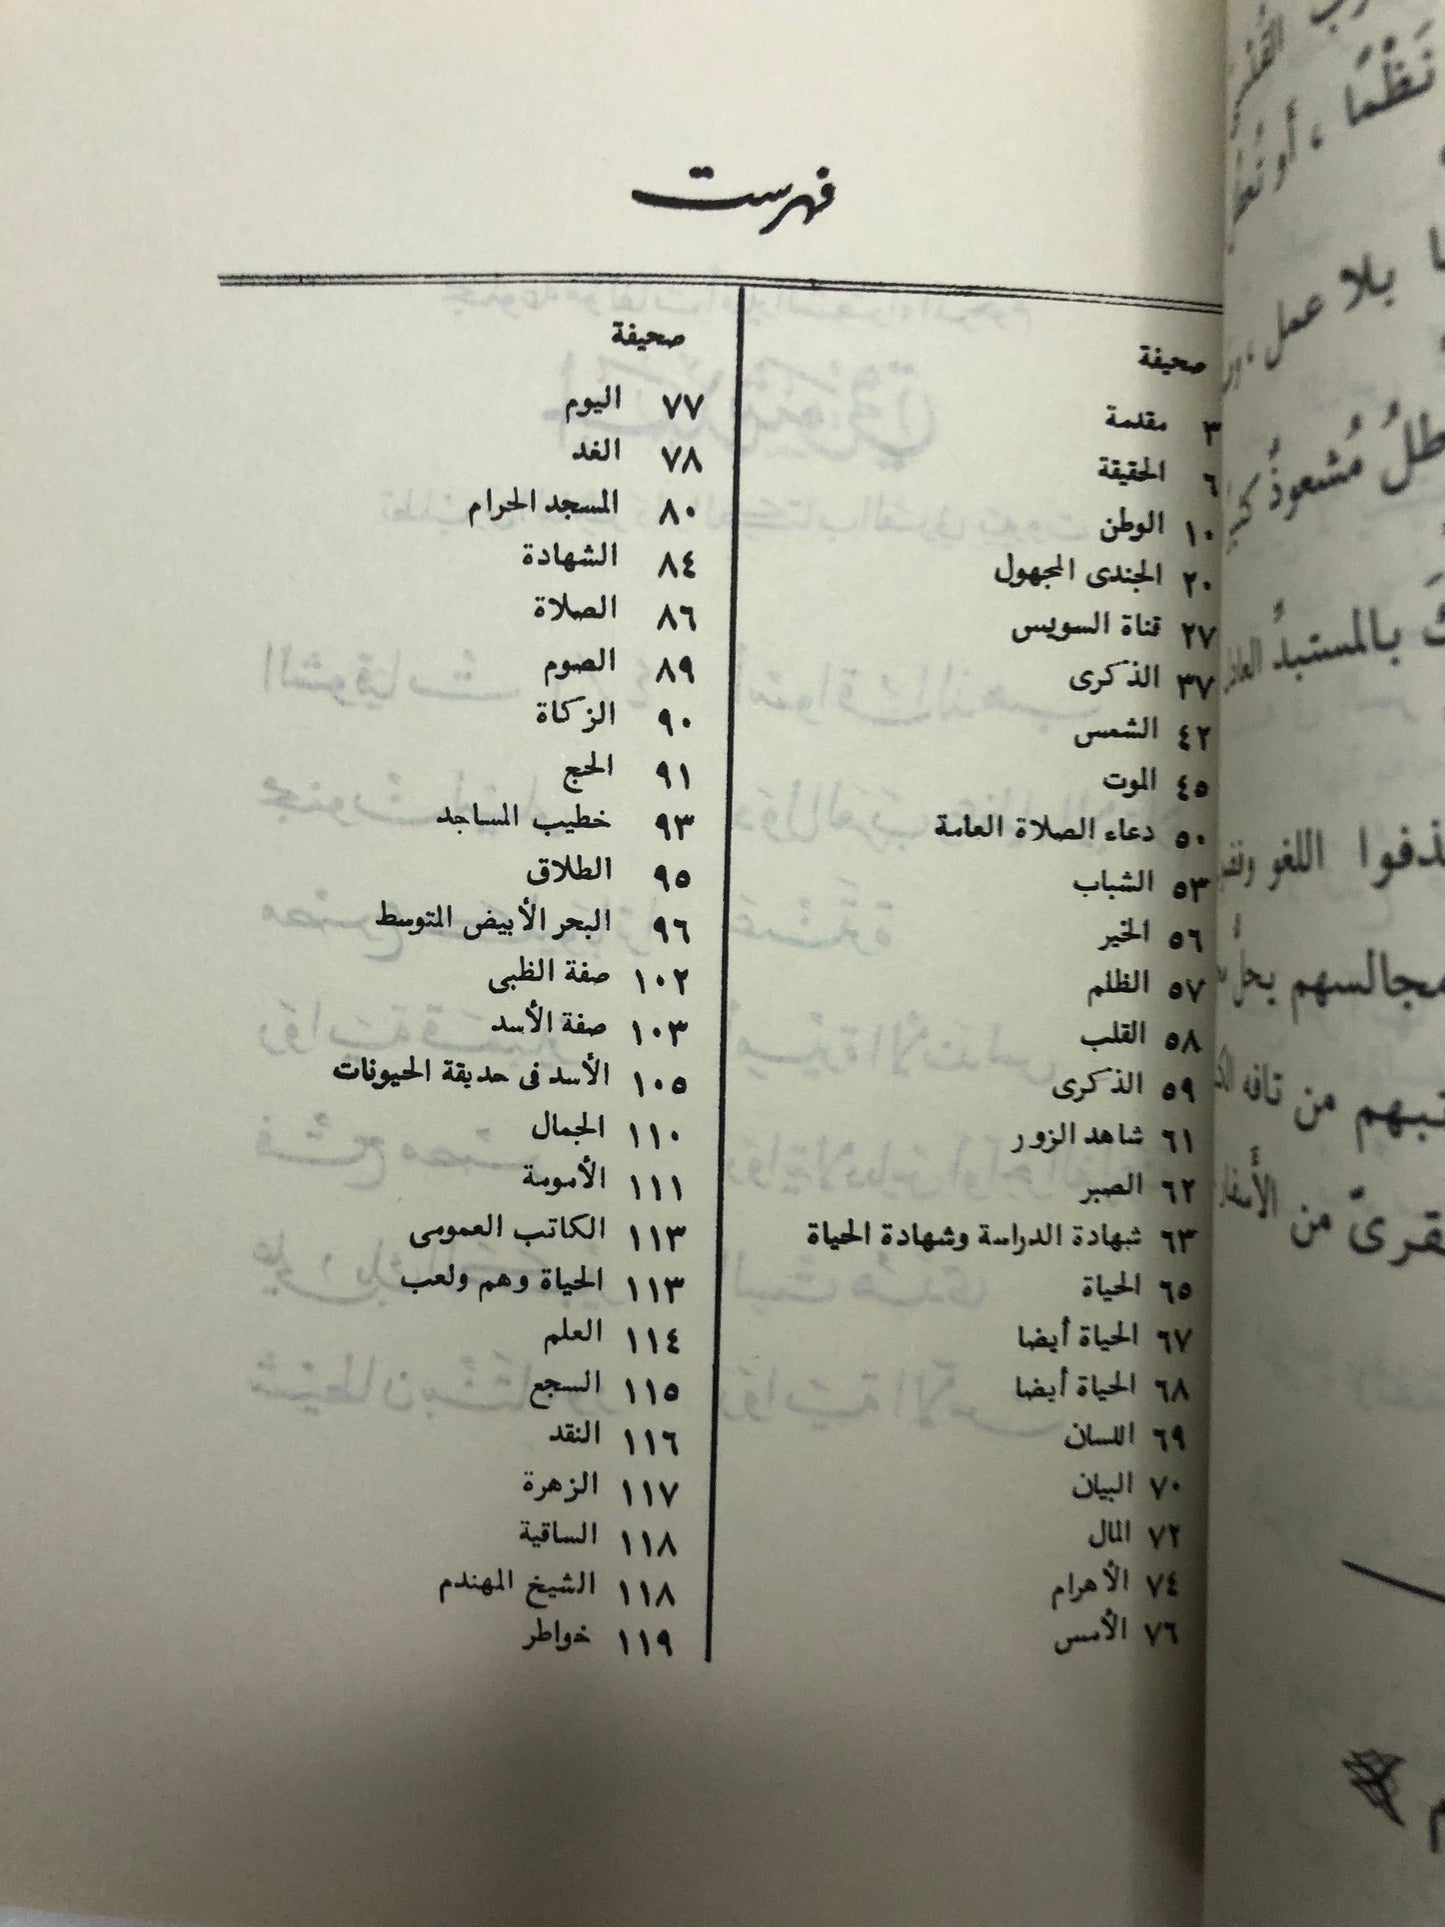 فهرست
صحيفة
٣ مقدمة
٦ الحقيقة
١٠ الوطن
٢٠ الجندى المجهول
٢٧ قناة السويس
٣٧ الذكرى
٤٢ الشمس
٤٥ الموت
٥٠ دعاء الصلاة العامة
٥٣ الشباب
٥٦ الخير
٥٧ الظلم
٥٨ القلب
٥٩ الذكرى
٦١ شاهد الزور
٦٢ الصبر
٦٣ شهادة الدراسة وشهادة الحياة
٦٥ الحياة
٦٧ الحياة أيضا
٦٨ الحياة أيضا
٦٩ اللسان
٧٠ البيان
٧٢ المال
٧٤ الأهرام
٧٦ الأمس
صحيفة
٧٧ اليوم
٧٨ الغد
٨٠ المسجد الحرام
٨٤ الشهادة
٨٦ الصلاة
٨٩ الصوم
٩٠ الزكاة
٩١ الحج
٩٣ خطيب المساجد
٩٥ الطلاق
٩٦ البحر الأبيض المتوسط
١٠٢ صفة الظبى
١٠٣ صفة الأسد
١٠٥ الأسد فى حديقة الحيونات
١١٠ الجمال
١١١ الأمومة
١١٣ الكاتب العمومى
١١٣ الحياة وهم ولعب
١١٤ العلم
١١٥ السجع
١١٦ النقد
١١٧ الزهرة
١١٨ الساقية
١١٨ الشيخ المهندم
١١٩ خواطر
نَظْمًا ،
بلا عمل ،
مُشعوذٌ
بالمستبدُ
اللغو
مجالسهم
من تافه
من